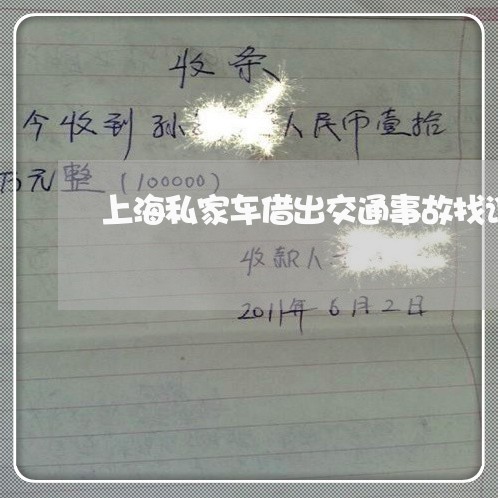 收条
今收到孙 人民币壹拾
万元整(100000)
上海私家车借出交通事故找
收款人
2011年6月2日